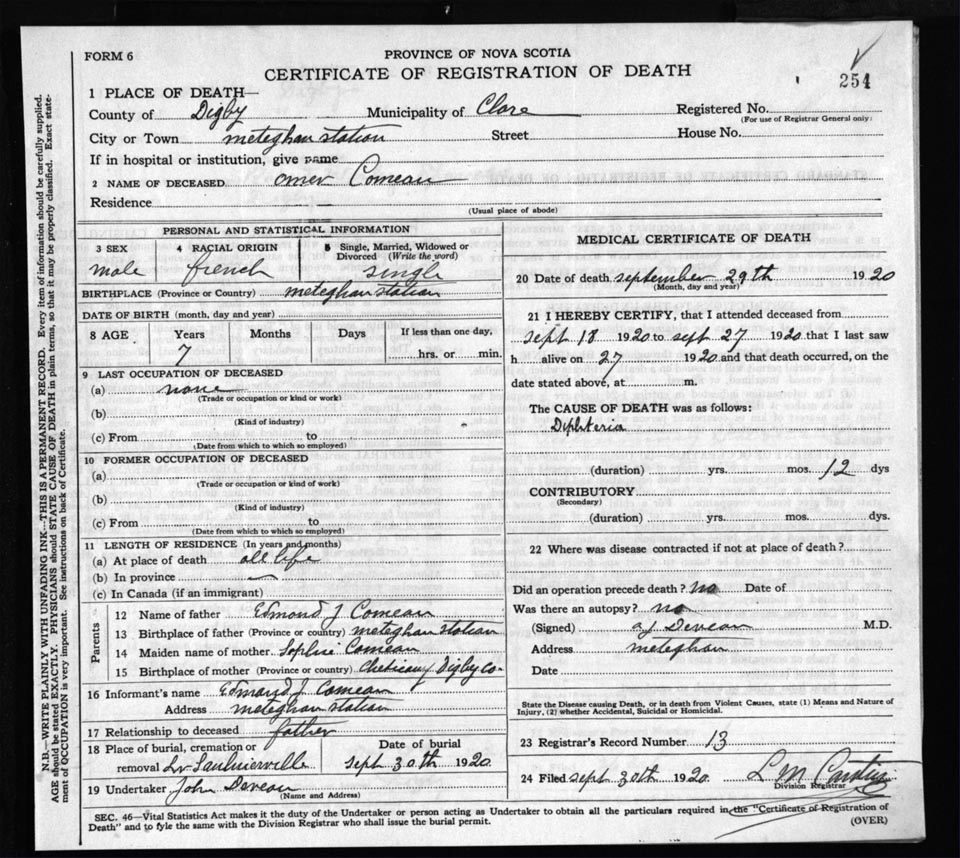 FORM 6
PROVINCE OF NOVA SCOTIA
CERTIFICATE OF REGISTRATION OF DEATH
254
1 PLACE OF DEATH—
County of Digby Municipality of Clare Registered No.
(For use of Registrar General only)
City or Town meteghan station Street House No.
If in hospital or institution, give name
2 NAME OF DECEASED omer Comeau
Residence
(Usual place of abode)
PERSONAL AND STATISTICAL INFORMATION
3 SEX 4 RACIAL ORIGIN 5 Single, Married, Widowed or
Divorced (Write the word)
male french single
BIRTHPLACE (Province or Country) meteghan station
DATE OF BIRTH (month, day and year)
8 AGE Years Months Days If less than one day,
7 hrs. or min.
9 LAST OCCUPATION OF DECEASED
(a) none
(Trade or occupation or kind or work)
(b)
(Kind of industry)
(c) From to
(Date from which to which so employed)
10 FORMER OCCUPATION OF DECEASED
(a)
(Trade or occupation or kind of work)
(b)
(Kind of industry)
(c) From to
(Date from which to which so employed)
11 LENGTH OF RESIDENCE (In years and months)
(a) At place of death all life
(b) In province
(c) In Canada (if an immigrant)
Parents
12 Name of father Edmond J Comeau
13 Birthplace of father (Province or country) meteghan station
14 Maiden name of mother Sophie Comeau
15 Birthplace of mother (Province or country) Digby Co-
16 Informant's name Edmond J. Comeau
Address meteghan station
17 Relationship to deceased father
18 Place of burial, cremation or Date of burial
removal Saulnierville sept 30th 1920
19 Undertaker John Deveau
(Name and Address)
MEDICAL CERTIFICATE OF DEATH
20 Date of death september 29th 1920
(Month, day and year)
21 I HEREBY CERTIFY, that I attended deceased from
sept 18 1920 to sept 27 1920 that I last saw
h alive on 27 1920 and that death occurred, on the
date stated above, at m.
The CAUSE OF DEATH was as follows:
Diphteria
(duration) yrs. mos. 12 dys
CONTRIBUTORY
(Secondary)
(duration) yrs. mos. dys.
22 Where was disease contracted if not at place of death?
Did an operation precede death? no Date of
Was there an autopsy? no
(Signed) a J Deveau M.D.
Address meteghan
Date
State the Disease causing Death, or in death from Violent Causes, state (1) Means and Nature of
Injury, (2) whether Accidental, Suicidal or Homicidal.
23 Registrar's Record Number 13
24 Filed sept 30th 1920 L M
Division Registrar
SEC. 46—Vital Statistics Act makes it the duty of the Undertaker or person acting as Undertaker to obtain all the particulars required in the "Certificate of Registration of
Death" and to fyle the same with the Division Registrar who shall issue the burial permit.
(OVER)
N.B.—WRITE PLAINLY WITH UNFADING INK—THIS IS A PERMANENT RECORD. Every item of information should be carefully supplied.
AGE should be stated EXACTLY. PHYSICIANS should STATE CAUSE OF DEATH in plain terms, so that it may be properly classified. Exact state-
ment of OCCUPATION is very important. See instructions on back of Certificate.